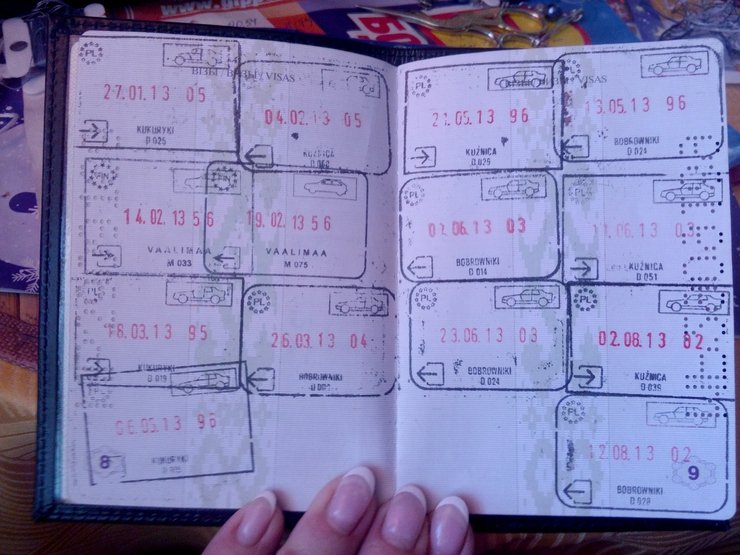 PL
27.01.13 05
KUKURYKI
D 025
ВІЗЫ/ВИЗЫ/VISAS
04.02.13 05
KUŹNICA
FIN
14.02.13 56
VAALIMAA
M 033
19.02.13 56
VAALIMAA
M 075
PL
18.03.13 95
KUKURYKI
D 019
PL
26.03.13 04
BOBROWNIKI
06.05.13 96
KUKURYKI
8
PL
21.05.13 96
KUŹNICA
D 025
VISAS
13.05.13 96
BOBROWNIKI
D 024
PL
01.06.13 03
BOBROWNIKI
D 014
PL
11.06.13 03
KUŹNICA
D 051
PL
23.06.13 03
BOBROWNIKI
D 024
PL
02.08.13 02
KUŹNICA
D 039
PL
12.08.13 02
BOBROWNIKI
D 028
9